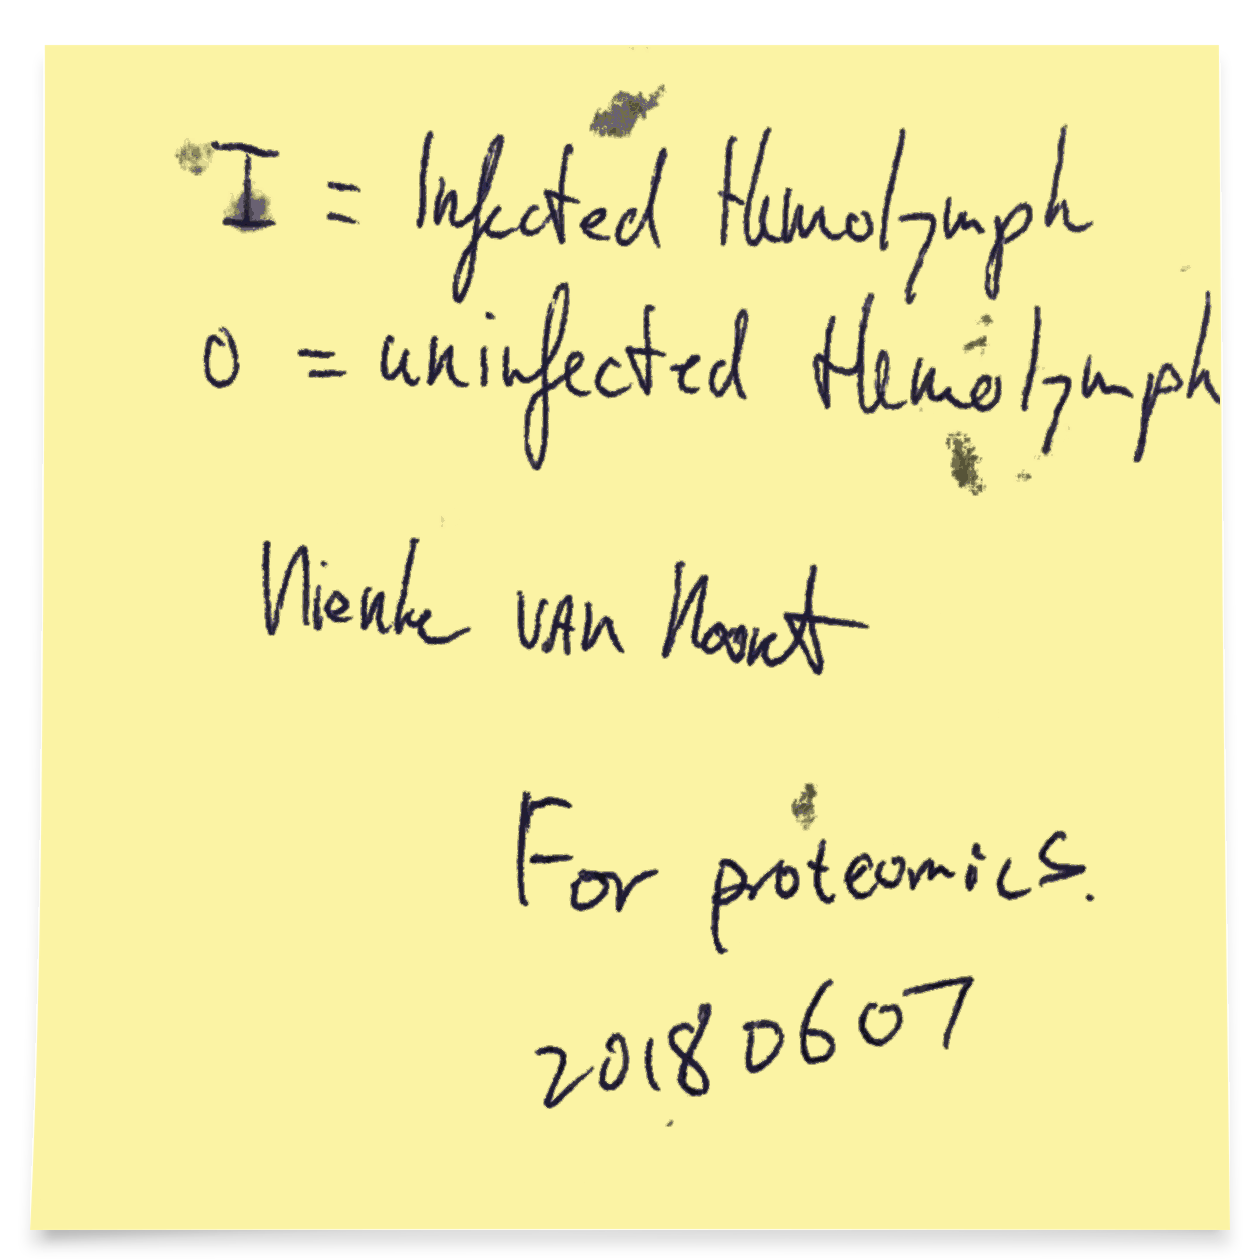 I = Infected Hemolymph
0 = uninfected Hemolymph
Nienke van Noort
For proteomics.
20180607